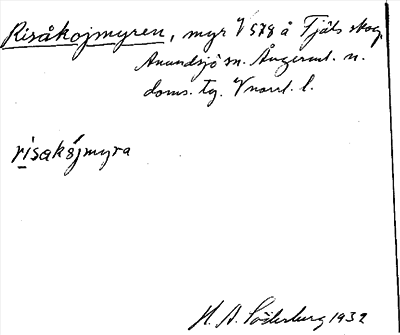 Risåkojmyren, myr V 578 å Fjäls skog,
Anundsjö sn. Ångerml. n.
doms. tg. Vnorrl. l.
risakójmyra
H. A. Söderberg 1932